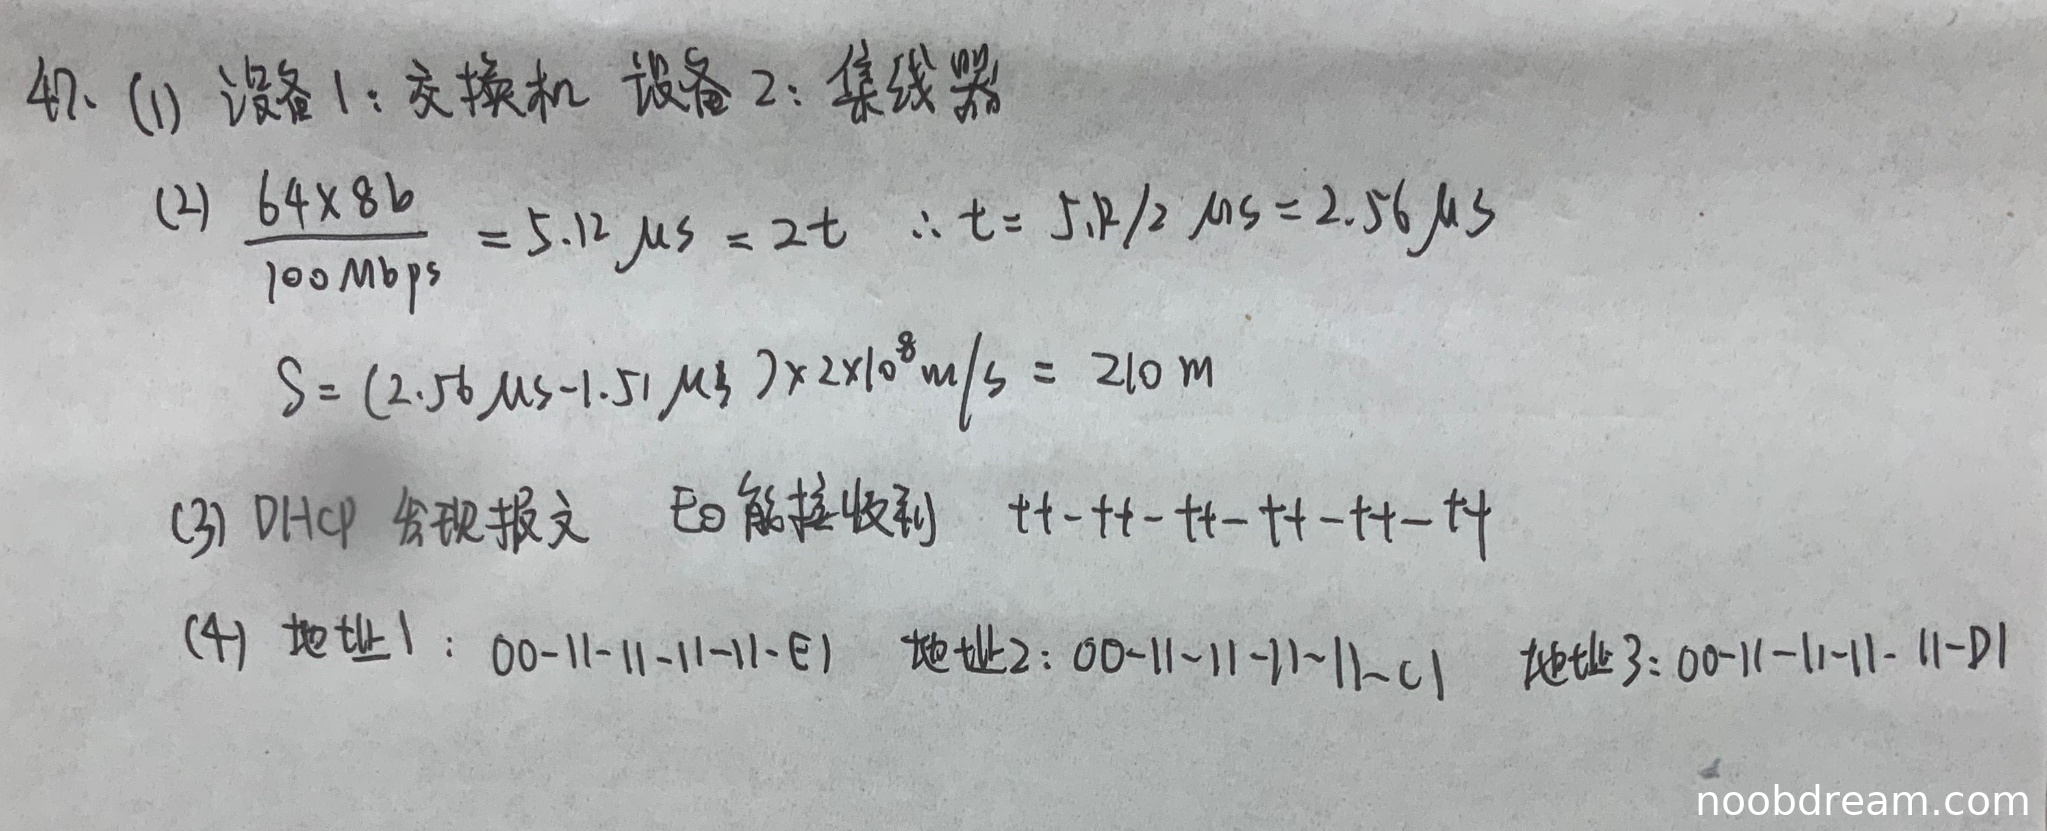 47. (1) 设备1:交换机 设备2:集线器
(2) 64×8b/100Mbps = 5.12 μs = 2t ∴ t = 5.12/2 μs = 2.56 μs
S = (2.56 μs-1.51 μs)×2×10⁸m/s = 210 m
(3) DHCP 发现报文 E0能接收到 ff-ff-ff-ff-ff-ff
(4) 地址1: 00-11-11-11-11-E1 地址2: 00-11-11-11-11-C1 地址3: 00-11-11-11-11-D1
noobdream.com